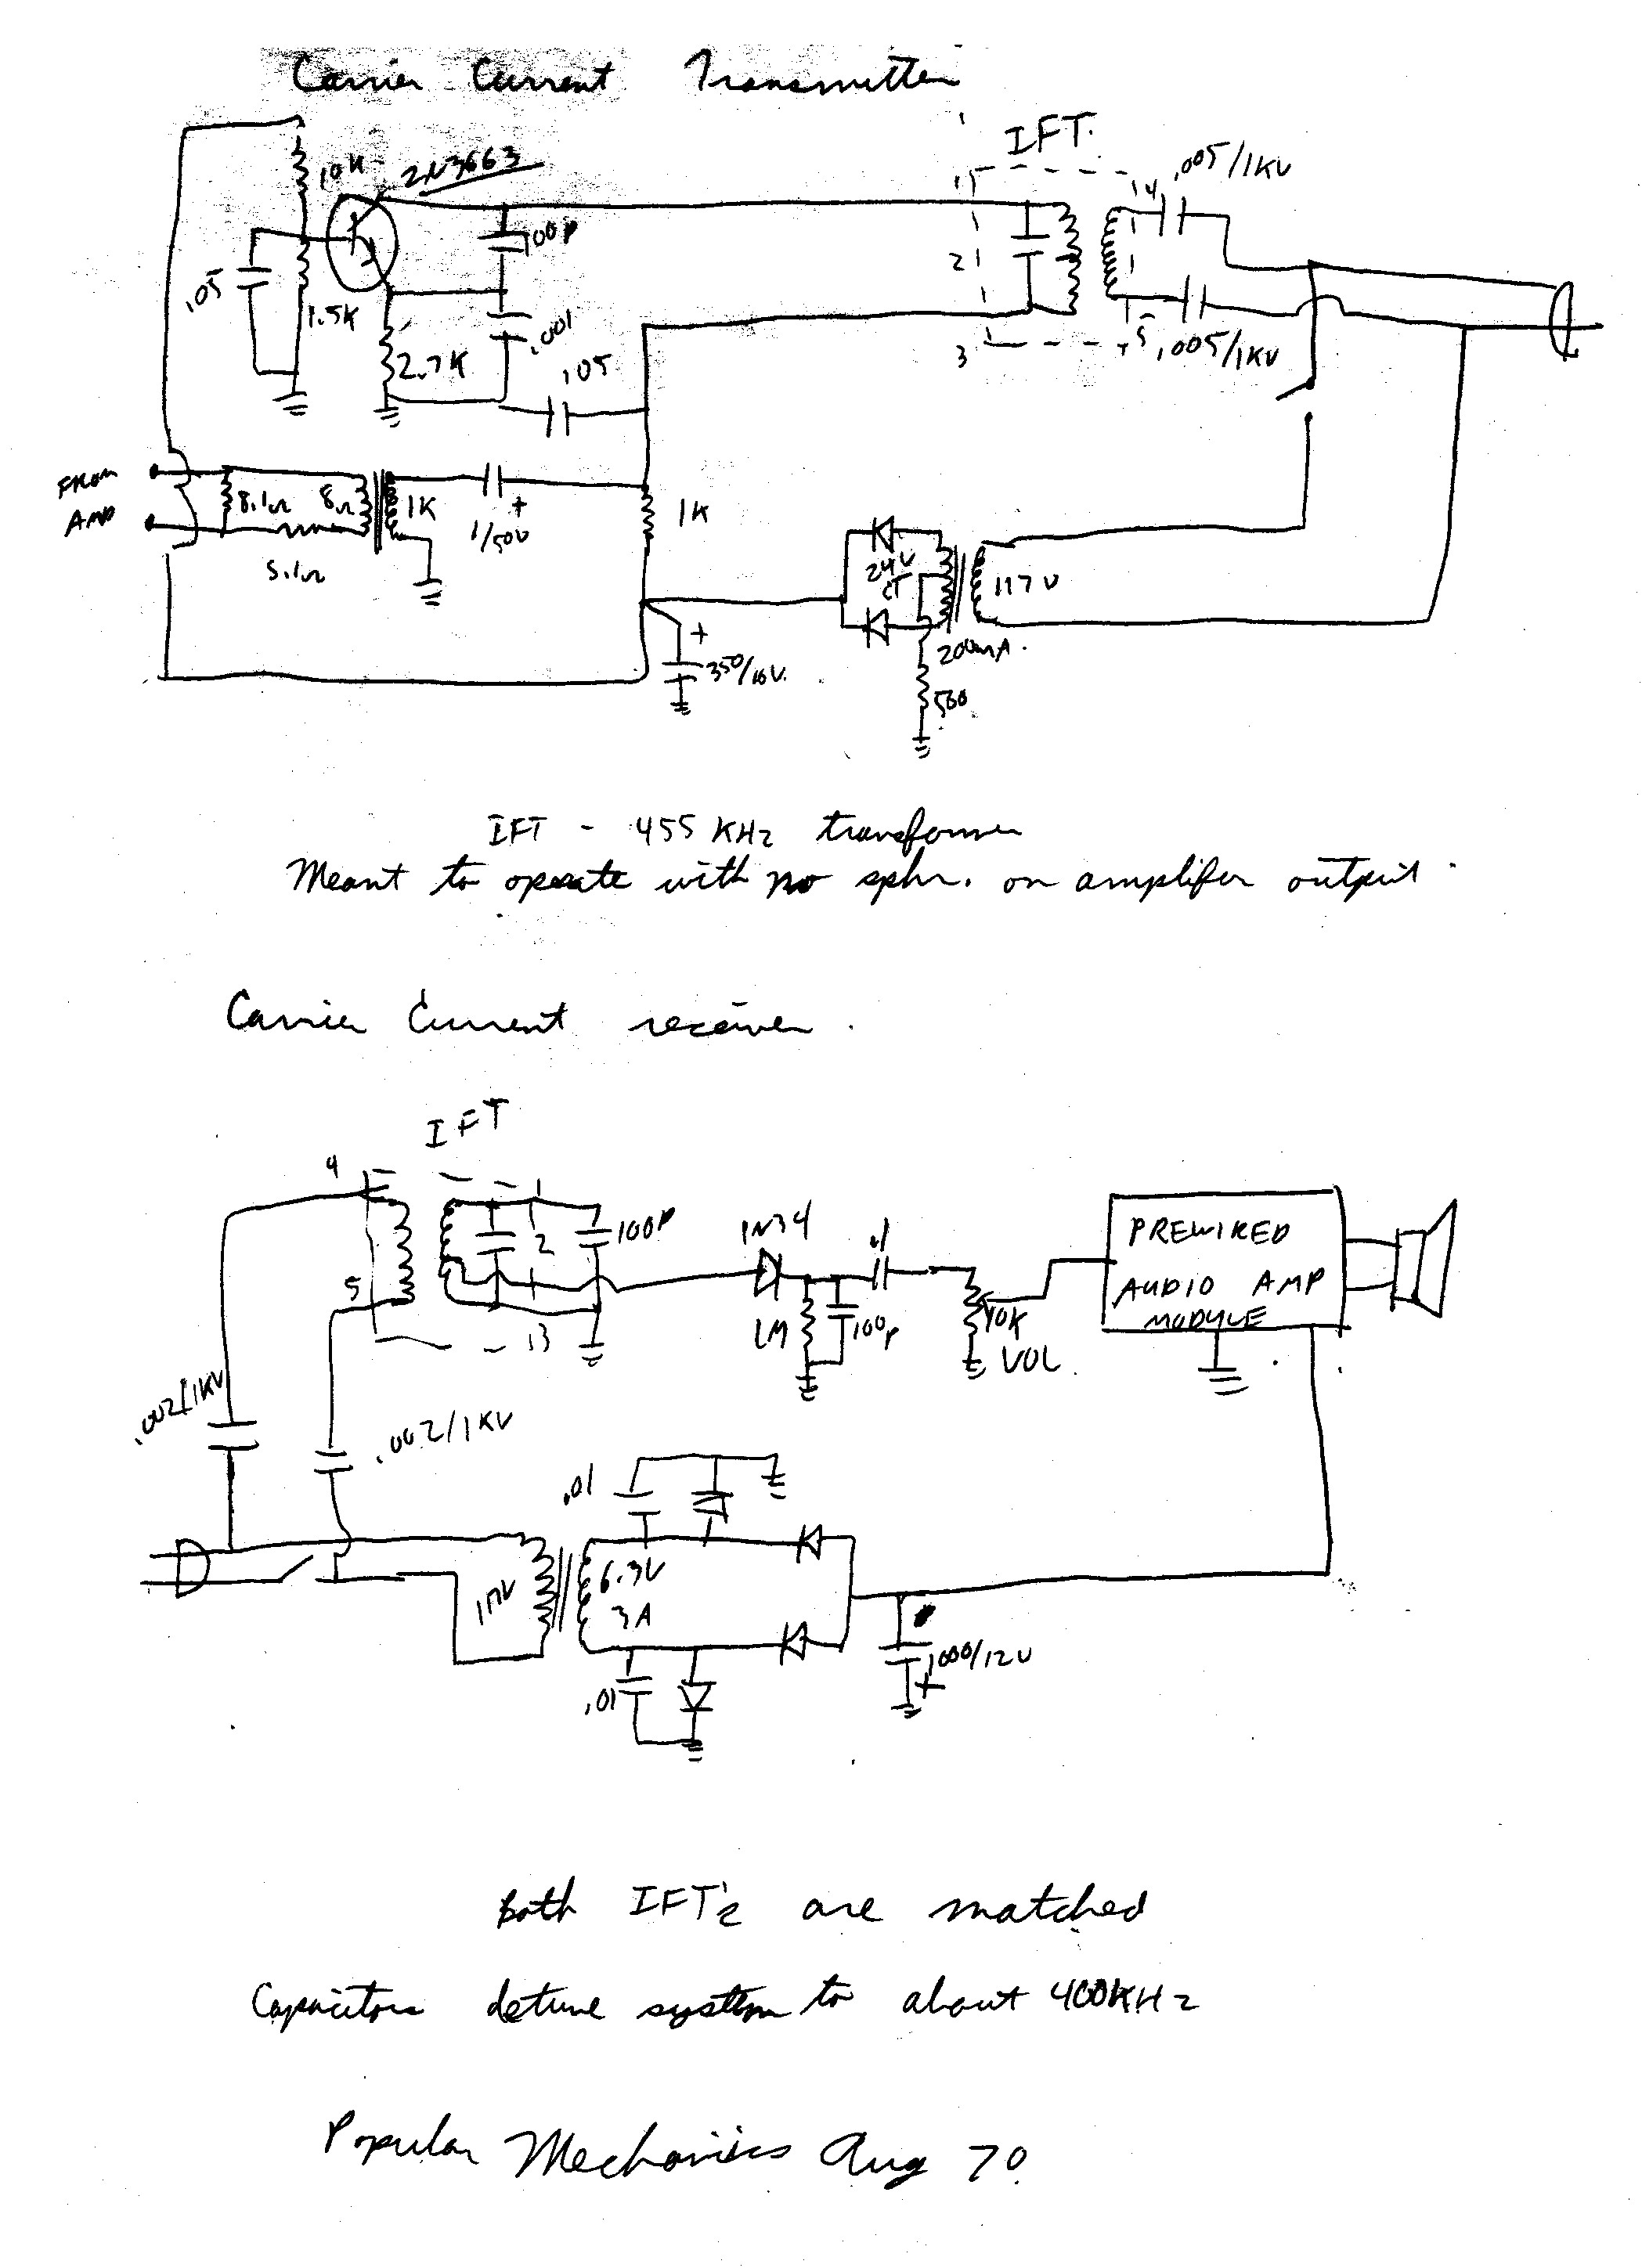 Carrier Current Transmitter
IFT.
10K
2N3663
1
4
.005/1KV
100P
.05
1.5K
2
.001
2.7K
.05
3
5
.005/1KV
FROM
AMP
8.1Ω
8Ω
1K
+
1/50V
1K
5.1Ω
24V
CT
117V
200mA.
+
350/10V.
560
IFT - 455 KHz transformer
Meant to operate with no spkr. on amplifer output.
Carrier Current receiver.
IFT
4
1
2
100P
1N34
.1
PREWIRED
AUDIO AMP
MODULE
5
1M
100p
10K
VOL
13
.002/1KV
.002/1KV
.01
117V
6.3V
3A
.01
1000/12V
+
Both IFT's are matched
Capacitors detune system to about 400KHz
Popular Mechanics Aug 70